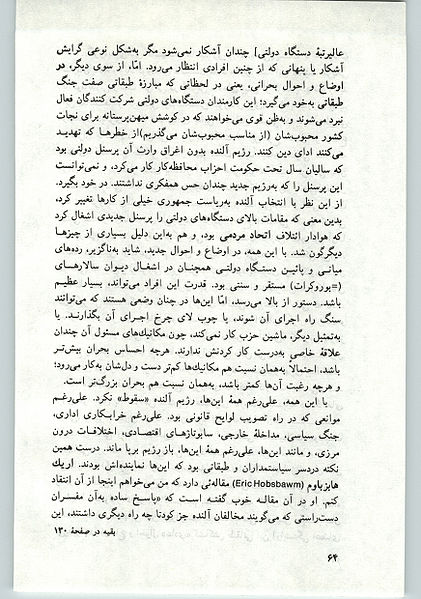 عالیرتبهٔ دستگاه دولتی] چندان آشکار نمی‌شود مگر به‌شکل نوعی گرایش
آشکار یا پنهانی که از چنین افرادی انتظار می‌رود. امّا، از سوی دیگر، در
اوضاع و احوال بحرانی، یعنی در لحظاتی که مبارزهٔ طبقاتی صفت جنگ
طبقاتی به‌خود می‌گیرد؛ این کارمندان دستگاه‌های دولتی شرکت کنندگان فعال
نبرد می‌شوند و به‌ظن قوی می‌خواهند که در کوشش میهن‌پرستانه برای نجات
کشور محبوب‌شان (از مناسب محبوب‌شان می‌گذریم)از خطرها که تهدید
می‌کنند ادای دین کنند. رژیم آلنده بدون اغراق وارث آن پرسنل دولتی بود
که سالیان سال تحت حکومت احزاب محافظه‌کار کار می‌کرد، و نمی‌توانست
این پرسنل را که به‌رژیم جدید چندان حس همفکری نداشتند. در خود بگیرد.
از این نظر با انتخاب آلنده به‌ریاست جمهوری خیلی از کارها تغییر کرد،
بدین معنی که مقامات بالای دستگاه‌های دولتی را پرسنل جدیدی اشغال کرد
که هوادار ائتلاف اتحاد مردمی بود، و هم به‌این دلیل بسیاری از چیزها
دیگرگون شد. با این همه، در اوضاع و احوال جدید، شاید به‌ناگزیر، رده‌های
میانی و پائین دستگاه دولتی همچنان در اشغال دیوان سالارهای
(=بوروکرات) مستقر و سنتی بود. قدرت این افراد می‌تواند، بسیار عظیم
باشد. دستور از بالا می‌رسد، امّا این‌ها در چنان وضعی هستند که می‌توانند
سنگ راه اجرای آن شوند، یا چوب لای چرخ اجرای آن بگذارند. یا
به‌تمثیل دیگر، ماشین حزب کار نمی‌کند، چون مکانیک‌های مسئول آن چندان
علاقهٔ خاصی به‌درست کار کردنش ندارند. هرچه احساس بحران بیش‌تر
باشد، احتمالاً به‌همان نسبت هم مکانیک‌ها کم‌تر دست و دل‌شان به‌کار می‌رود؛
و هرچه رغبت آن‌ها کمتر باشد، به‌همان نسبت هم بحران بزرگ‌تر است.
با این همه، علی‌رغم همهٔ این‌ها، رژیم آلنده «سقوط» نکرد. علی‌رغم
موانعی که در راه تصویب لوایح قانونی بود. علی‌رغم خرابکاری اداری،
جنگ سیاسی، مداخلهٔ خارجی، سابوتاژهای اقتصادی، اختلافات درون
مرزی، و مانند این‌ها، علی‌رغم همهٔ این‌ها، باز رژیم برپا ماند. درست همین
نکته دردسر سیاستمداران و طبقاتی بود که این‌ها نماینده‌اش بودند. اریک
هابزباوم (Eric Hobsbawm) مقاله‌ئی دارد که من می‌خواهم اینجا از آن انتقاد
کنم. او در آن مقاله خوب گفته است که «پاسخ ساده به‌آن مفسران
دست‌راستی که می‌گویند مخالفان آلنده جز کودتا چه راه دیگری داشتند، این
بقیه در صفحهٔ ۱۳۰
۶۴